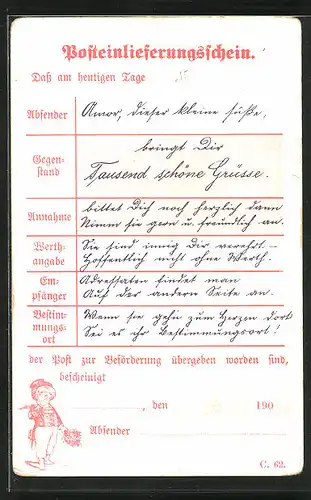 Posteinlieferungsschein.
Daß am heutigen Tage
Absender
Amor, dieser kleine süße,
Gegen-
stand
bringt Dir
Tausend schöne Grüsse.
Annahme
bittet Dich noch herzlich dann
Nimm sie gern u. freundlich an.
Werth-
angabe
Sie sind innig dir verehrt –
Hoffentlich nicht ohne Werth.
Em-
pfänger
Adressaten findet man
Auf der andern Seite an.
Bestim-
mungs-
ort
Wenn sie gehn zum Herzen dort
Sei es ihr Bestimmungsort!
der Post zur Beförderung übergeben worden sind,
bescheinigt
, den 190
Absender
C. 62.